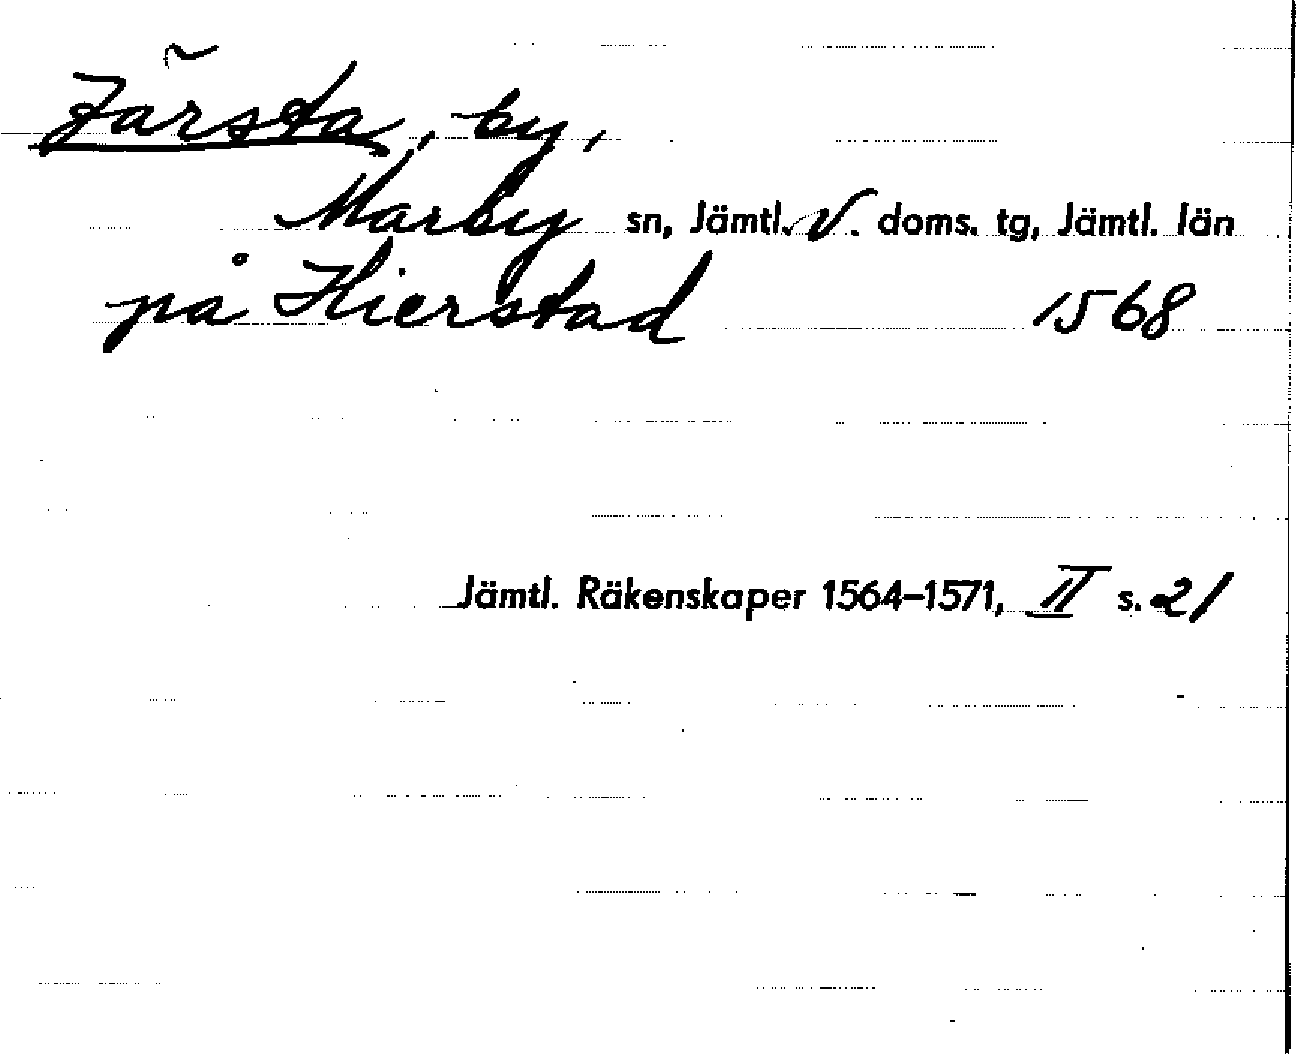 Järsta, by,
Marby sn, Jämtl. V. doms. tg, Jämtl. län
på Hierstad 1568
Jämtl. Räkenskaper 1564–1571, II s. 21